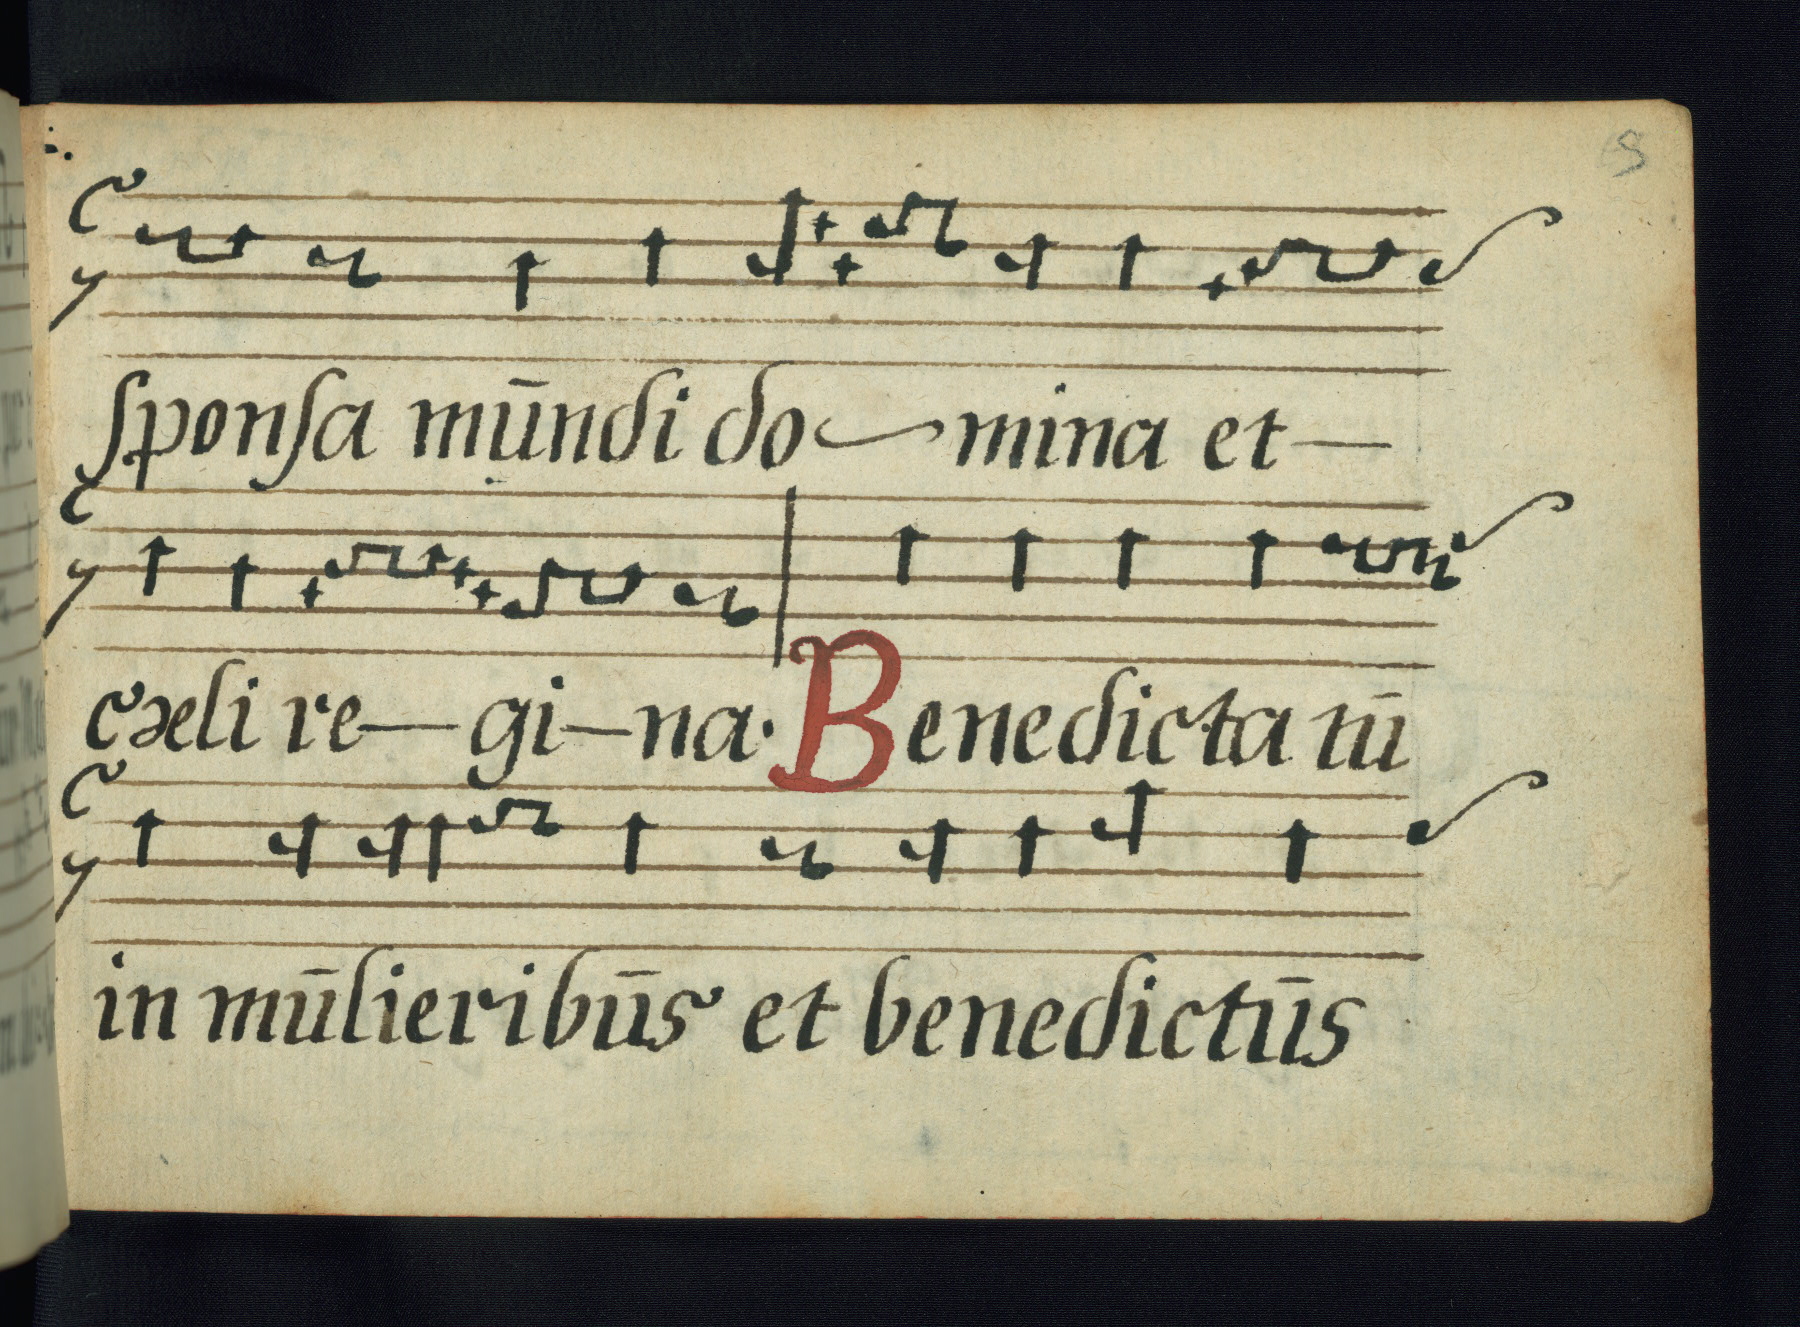 ſponſa mūndi do mina et
cæli re gi na. Benedicta tū
in mūlieribūs et benedictūs